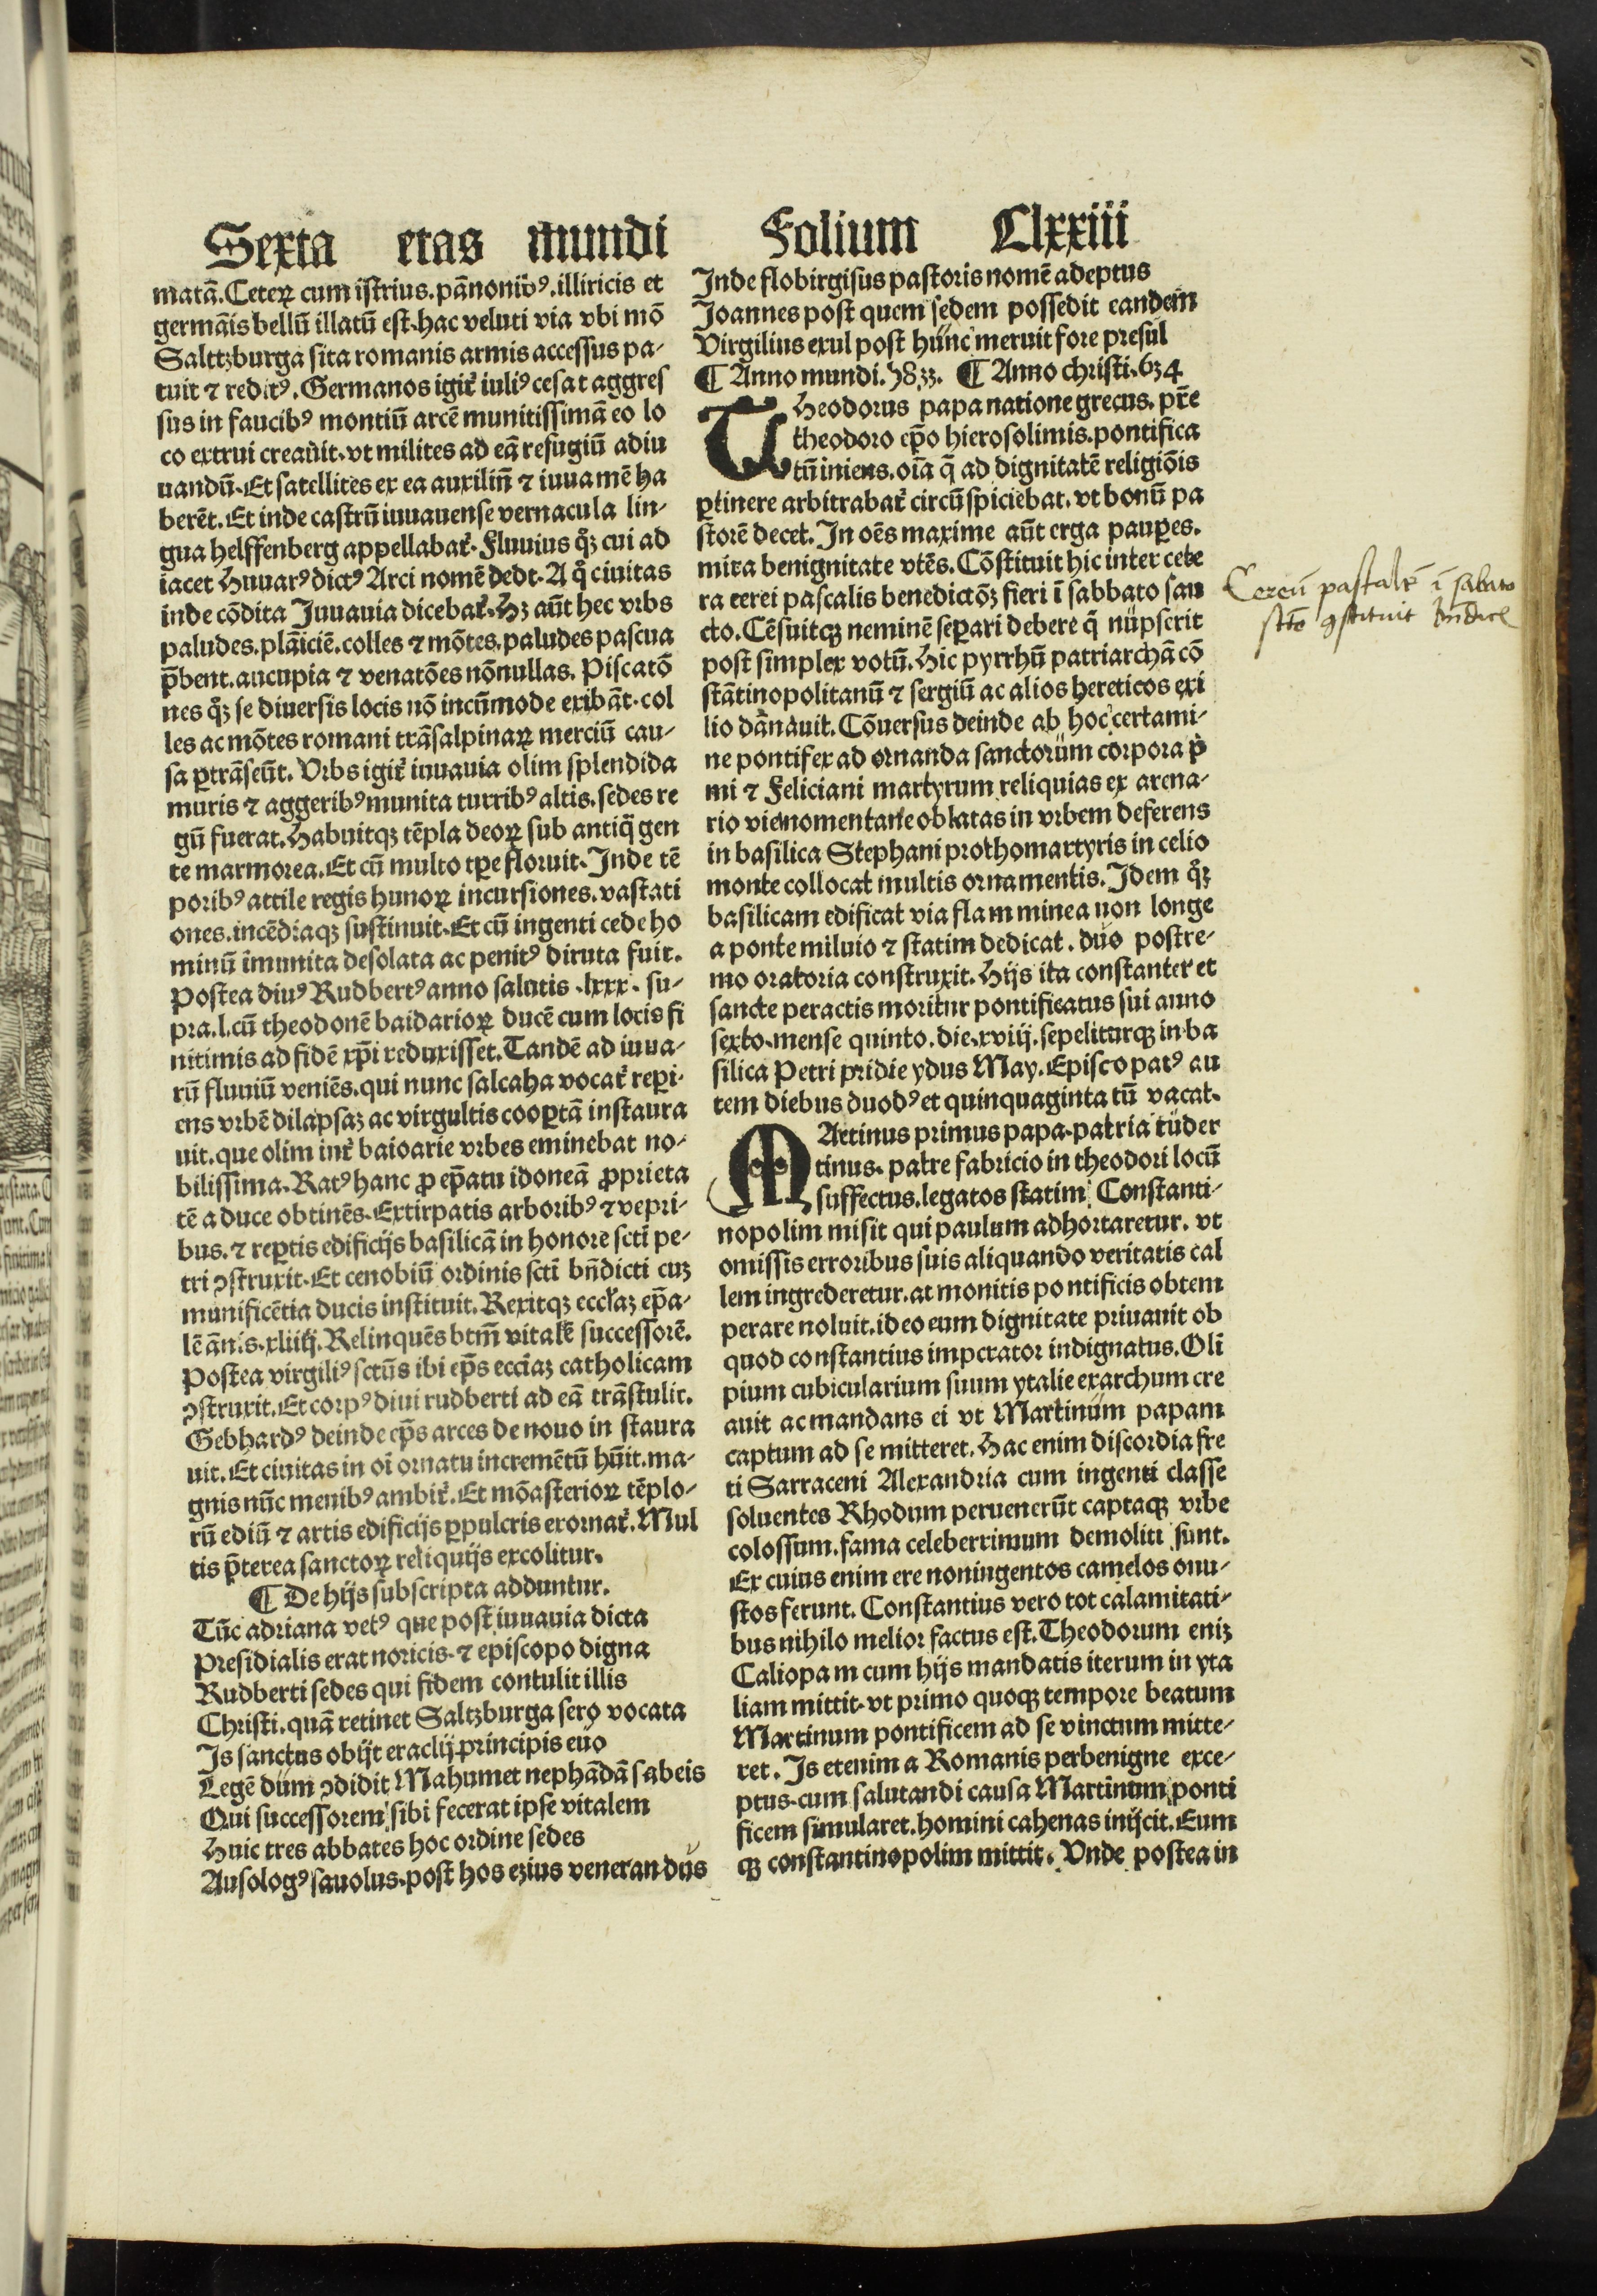 Sexta etas mundi
matã. Ceteꝝ cum istrius. pãnonijꝰ. illiricis et
germãis bellũ illatũ est. hac veluti via vbi mõ
Salttzburga sita romanis armis accessus pa-
tuit ⁊ reditꝰ. Germanos igit̃ iuliꝰ cesat aggres
sus in faucibꝰ montiũ arcẽ munitissimã eo lo
co extrui creauit. vt milites ad eã refugiũ adiu
uandũ. Et satellites ex ea auxiliũ ⁊ iuuamẽ ha
berẽt. Et inde castrũ iuuauense vernacula lin-
gua helffenberg appellabat̃. Fluuius qͦꝫ cui ad
iacet Huuarꝰ dictꝰ Arci nomẽ dedt. A qͦ ciuitas
inde cõdita Juuauia dicebat̃. Hꝫ aũt hec vrbs
paludes. plãiciẽ. colles ⁊ mõtes. paludes pascua
p̃bent. aucupia ⁊ venatões nõnullas. Piscatõ
nes qͦꝫ se diuersis locis nõ incũmode exibãt. col
les ac mõtes romani trãsalpinaꝝ merciũ cau-
sa ꝑtrãseũt. Vrbs igit̃ iuuauia olim splendida
muris ⁊ aggeribꝰ munita turribꝰ altis. sedes re
gũ fuerat. Habuitqꝫ tẽpla deoꝝ sub antiq̃ gen
te marmorea. Et cũ multo tꝑe floruit. Inde tẽ
poribꝰ attile regis hunoꝝ incursiones. vastati
ones. incẽdiaqꝫ sustinuit. Et cũ ingenti cede ho
minũ ĩmunita desolata ac penitꝰ diruta fuit.
Postea diuꝰ Rudbertꝰ anno salutis .lxxx. su-
pra. l. cũ theodonẽ baidarioꝝ ducẽ cum locis fi
nitimis ad fidẽ xp̃i reduxisset. Tandẽ ad iuua-
rũ fluuiũ veniẽs. qui nunc salcaha vocat̃ reperi-
ens vrbẽ dilapsaꝫ ac virgultis cooꝑtã instaura
uit. que olim int̃ baioarie vrbes eminebat no-
bilissima. Ratꝰ hanc ꝓ ep̃atu idoneã ꝓprieta
tẽ a duce obtinẽs. Extirpatis arboribꝰ ⁊ vepri-
bus. ⁊ reptis edificijs basilicã in honore scti pe-
tri ꝯstruxit. Et cenobiũ ordinis scti bñdicti cuꝫ
munificẽtia ducis instituit. Rexitqꝫ eccl̃aꝫ ep̃a-
lẽ ãnis. xliiij. Relinquẽs btm̃ vitalẽ successorẽ.
Postea virgiliꝰ sctũs ibi ep̃s eccl̃aꝫ catholicam
ꝯstruxit. Et corpꝰ diui rudberti ad eã trãstulit.
Gebhardꝰ deinde ep̃s arces de nouo in staura
uit. Et ciuitas in oĩ ornatu incremẽtũ hũit. ma-
gnis nũc menibꝰ ambit̃. Et mõasterioꝝ tẽplo-
rũ ediũ ⁊ artis edificijs ꝑpulcris exornat̃. Mul
tis p̃terea sanctoꝝ reliquijs excolitur.
¶ De hijs subscripta adduntur.
Tũc adriana vetꝰ que post iuuauia dicta
Presidialis erat noricis. ⁊ episcopo digna
Rudberti sedes qui fidem contulit illis
Christi. quã retinet Saltzburga sero vocata
Is sanctus obijt eraclij principis euo
Legẽ dum ꝯdidit Mahumet nephãdã sabeis
Qui successorem sibi fecerat ipse vitalem
Huic tres abbates hoc ordine sedes
Ausologꝰ sauolus. post hos ezius venerandus
Folium Clxxiii
Inde flobirgisus pastoris nomẽ adeptus
Joannes post quem sedem possedit eandem
Virgilius exul post hunc meruit fore presul
¶ Anno mundi. 5833. ¶ Anno christi. 634
THeodorus papa natione grecus. pr̃e
theodoro ep̃o hierosolimis. pontifica
tũ iniens. oĩa q̃ ad dignitatẽ religiõis
ꝑtinere arbitrabat̃ circũspiciebat. vt bonũ pa
storẽ decet. In oẽs maxime aũt erga pauꝑes.
mira benignitate vtẽs. Cõstituit hic inter cete
ra cerei pascalis benedictõꝫ fieri ĩ sabbato san
cto. Cẽsuitqꝫ neminẽ seꝑari debere q̃ nupserit
post simplex votũ. Hic pyrrhũ patriarchã cõ
stãtinopolitanũ ⁊ sergiũ ac alios hereticos exi
lio dãnauit. Cõuersus deinde ab hoc certami-
ne pontifex ad ornanda sanctorum corpora p̃
mi ⁊ Feliciani martyrum reliquias ex arena-
rio vie nomentane oblatas in vrbem deferens
in basilica Stephani prothomartyris in celio
monte collocat multis ornamentis. Idem qͦꝫ
basilicam edificat via flam minea non longe
a ponte miluio ⁊ statim dedicat. duo postre-
mo oratoria construxit. Hijs ita constanter et
sancte peractis moritur pontificatus sui anno
sexto. mense quinto. die. xviij. sepeliturqꝫ in ba
silica Petri pridie ydus May. Episcopatꝰ au
tem diebus duodꝰ et quinquaginta tũ vacat.
MArtinus primus papa. patria tuder
tinus. patre fabricio in theodori locũ
suffectus. legatos statim Constanti-
nopolim misit qui paulum adhortaretur. vt
omissis erroribus suis aliquando veritatis cal
lem ingrederetur. at monitis pontificis obtem
perare noluit. ideo eum dignitate priuauit ob
quod constantius imperator indignatus. Oli
pium cubicularium suum ytalie exarchum cre
auit ac mandans ei vt Martinum papam
captum ad se mitteret. Hac enim discordia fre
ti Sarraceni Alexandria cum ingenti classe
soluentes Rhodum peruenerũt captaqꝫ vrbe
colossum. fama celeberrimum demoliti sunt.
Ex cuius enim ere noningentos camelos onu-
stos ferunt. Constantius vero tot calamitati-
bus nihilo melior factus est. Theodorum eniꝫ
Caliopam cum hijs mandatis iterum in yta
liam mittit. vt primo quoqꝫ tempore beatum
Martinum pontificem ad se vinctum mitte-
ret. Is etenim a Romanis perbenigne exce-
ptus. cum salutandi causa Martinum ponti
ficem simularet. homini cahenas inijcit. Eum
qꝫ constantinopolim mittit. Vnde postea in
Cereũ pastalẽ ĩ sabato
stõ ꝯstituit